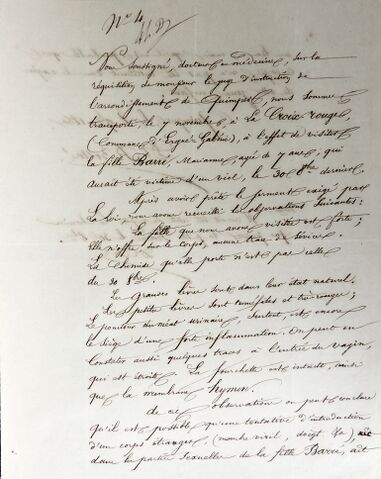 N° 4
Nous soussigné, docteur en médecine, sur la
réquisition de monsieur le juge d'instruction de
l'arrondissement de Quimper, nous sommes
transporté, le 7 novembre à La Croix-rouge,
(Commune d'Ergué-Gabéric), à l'effet de visiter
la fille Barré, Marianne, agée de 7 ans, qui
aurait été victime d'un viol, le 30 8bre dernier.
Après avoir prêté le serment exigé par
la loi, nous avons recueilli les observations suivantes:
La fille que nous avons visitée est forte;
Elle n'offre sur le corps, aucune trace de sévices.
La chemise qu'elle porte n'est pas celle
du 30 8bre.
Les grandes lèvres sont dans leur état naturel.
Les petites lèvres sont tuméfiées et très rouges;
le pourtour du méat urinaire, surtout, est encore
le siège d'une forte inflammation. On peut en
constater aussi quelques traces à l'entrée du vagin,
qui est étroite. La fourchette est intacte, ainsi
que la membrane hymen.
De ces observations on peut conclure
qu'il est possible qu'une tentative d'introduction
d'un corps étranger (membre viril, doigt, &a),
dans les parties sexuelles de la fille Barré, ait